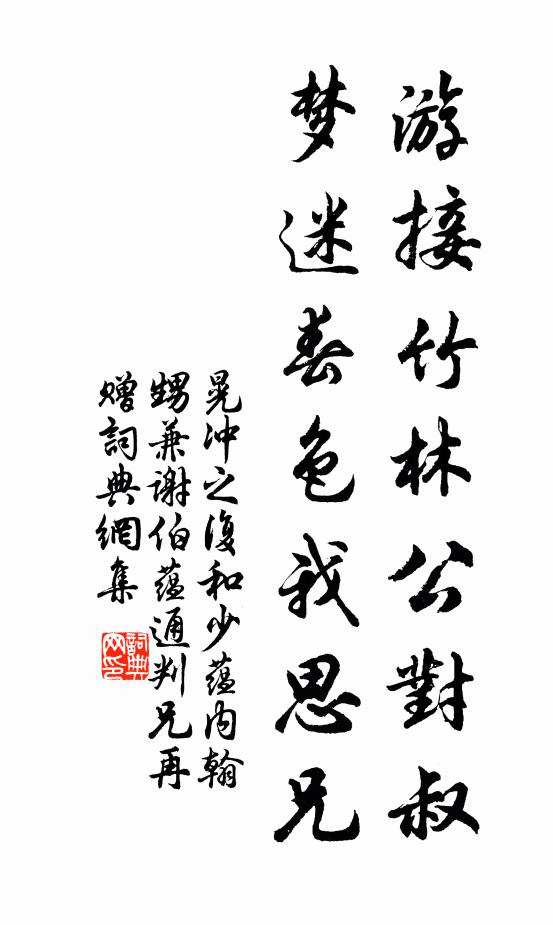 游接竹林公對叔
梦迷春色我思兄
晁冲之復和少蘊内翰
甥兼谢伯蕴通判兄再
赠詞典網集
詞典
网印